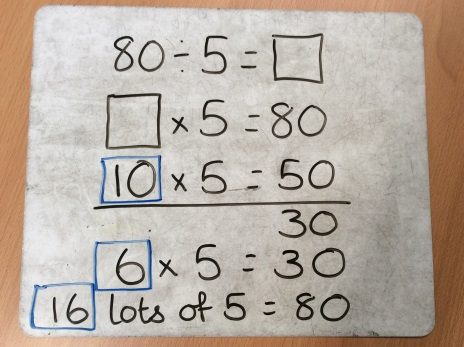 80 ÷ 5 = □
□ × 5 = 80
10 × 5 = 50
30
6 × 5 = 30
16 lots of 5 = 80